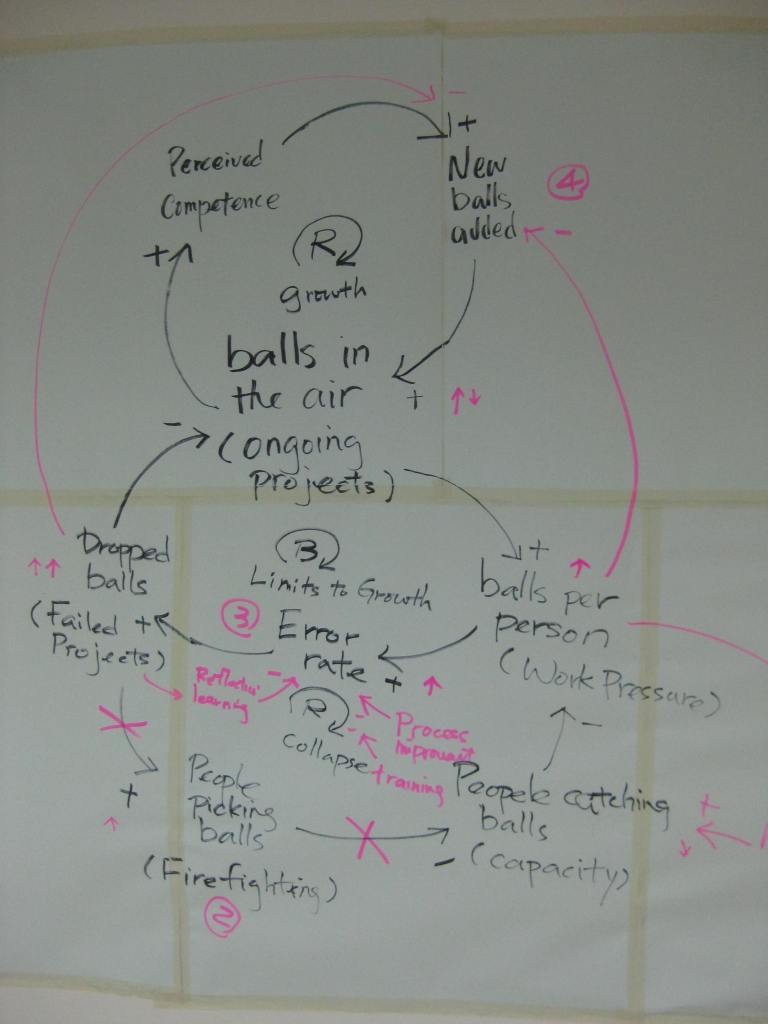 -
+
Perceived
Competence
New
balls
added
4
-
+
R
growth
balls in
the air
+
-
(ongoing
projects)
Dropped
balls
(Failed +
Projects)
B
Limits to Growth
+
balls per
person
(Work Pressure)
3
Error
rate +
-
learning
R
Collapse
-
Process
-
training
-
+
People
picking
balls
(Firefighting)
2
Peopele catching
balls
-
(capacity)
+